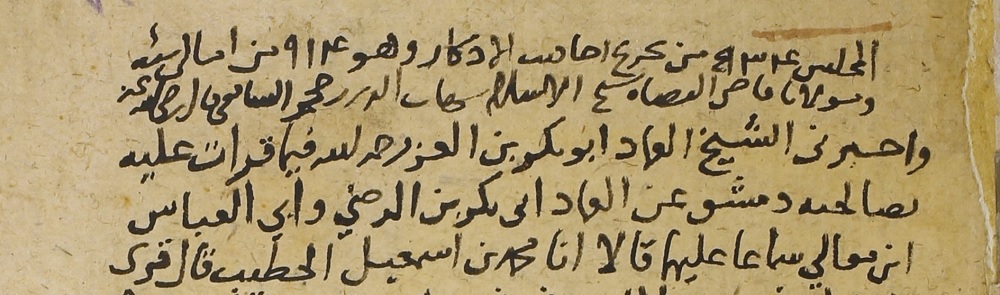 المجلس ٩٣٤ من تخريج احاديث الاذكار وهو ٩١٤ من امالي شيخنا
ومولانا قاضي القضاة شيخ الاسلام شهاب الدين بن حجر الشافعي قال رضي الله عنه
واخبرني الشيخ العماد ابو بكر بن العز رحمه الله فيما قرات عليه
بصالحية دمشق عن العماد ابي بكر بن الرضي وابي العباس
ابن معالي سماعا عليهما قالا انا محمد بن اسمعيل الخطيب قال قرى